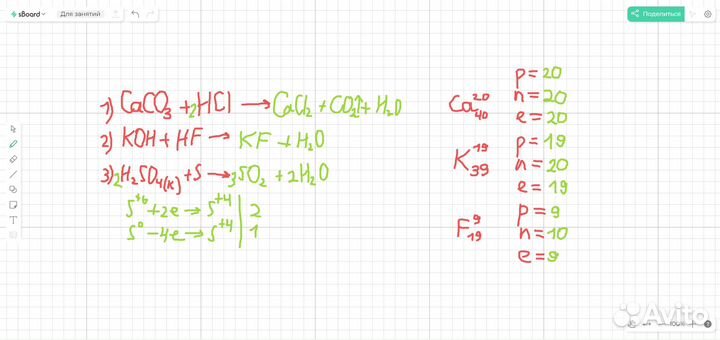 sBoard
Для занятий
Поделиться
1) CaCO₃ + 2HCl → CaCl₂ + CO₂↑ + H₂O
2) KOH + HF → KF + H₂O
3) 2H₂SO₄(к) + S → 3SO₂ + 2H₂O
S⁺⁶ + 2e → S⁺⁴ | 2
S⁰ − 4e → S⁺⁴ | 1
Ca²⁰₄₀
p = 20
n = 20
e = 20
K¹⁹₃₉
p = 19
n = 20
e = 19
F⁹₁₉
p = 9
n = 10
e = 9
Avito